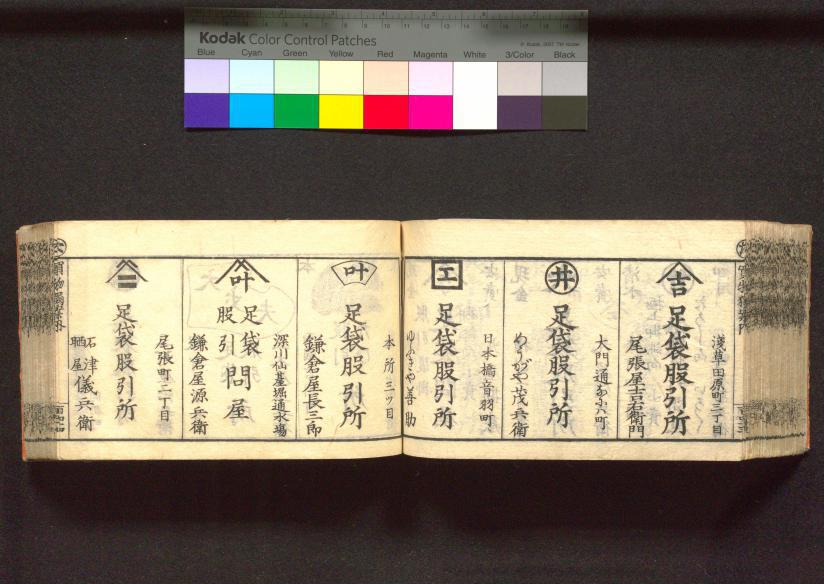 Kodak Color Control Patches
Blue Cyan Green Yellow Red Magenta White 3/Color Black
浅草田原町三丁目
吉 足袋股引所
尾張屋吉右衛門
大門通
井 足袋股引所
めうがや茂兵衛
日本橋音羽町
エ 足袋股引所
ゆふきや善助
本所三ツ目
叶 足袋股引所
鎌倉屋長三郎
深川仙台堀通
叶 足袋股引問屋
鎌倉屋源兵衛
尾張町二丁目
二 足袋股引所
石津
晒屋
儀兵衛